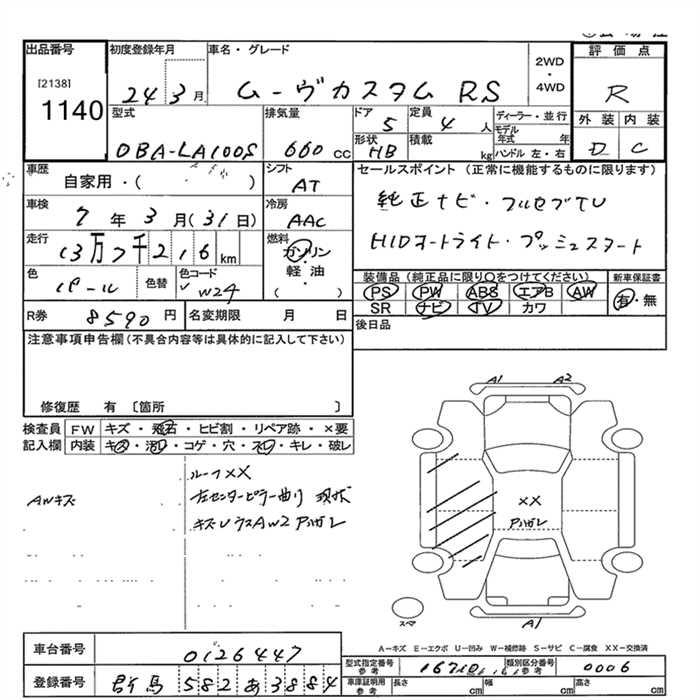 出品番号
[2138]
1140
初度登録年月
24 3月
車名・グレード
ムーヴカスタム RS
2WD
・
4WD
評価点
R
外装 内装
D C
型式
DBA-LA100S
排気量
660 cc
ドア
5
定員
4 人
形状
HB
積載
kg
ディーラー・並行
モデル年式 年
ハンドル 左・右
車歴
自家用・( )
シフト
AT
車検
7年 3月 (31日)
冷房
AAC
走行
13万7千216 km
燃料
ガソリン
軽油
( )
色
パール
色替
色コード
W24
セールスポイント (正常に機能するものに限ります)
純正ナビ・フルセグTV
HIDオートライト・プッシュスタート
装備品(純正品に限り○をつけてください)
PS PW ABS エアB AW
SR ナビ TV カワ
新車保証書
有・無
R券
8590 円
名変期限 月 日
後日品
注意事項申告欄(不具合内容等は具体的に記入して下さい)
修復歴 有 〔箇所 〕
検査員記入欄
FW キズ・飛石・ヒビ割・リペア跡・×要
内装 キズ・汚れ・コゲ・穴・スレ・キレ・破レ
AWキズ
ルーフXX
左センターピラー曲り 現状
A1 A2
XX
アルガレ
スマ
A1
A-キズ E-エクボ U-凹み W-補修跡 S-サビ C-腐食 XX-交換済
車台番号
0126447
登録番号
群馬 582 あ 3884
型式指定番号
参考
類別区分番号
参考
0006
車庫証明用
参考
長さ cm
幅 cm
高さ cm